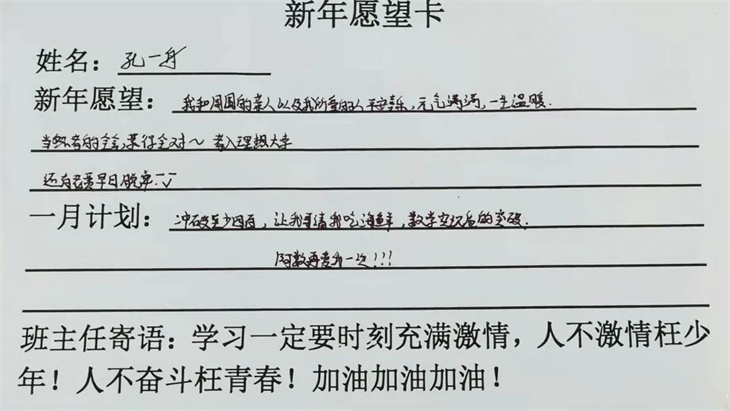 新年愿望卡
姓名：孔一舟
新年愿望：我和周围的亲人以及我所爱的人平安喜乐，元气满满，一生温暖.
当然考的全会,蒙得全对～ 考入理想大学
还有老婆早日脱单
一月计划：冲破至少四百，让我哥请我吃海鲜，数学实现质的突破.
再爱我一次!!!
班主任寄语：学习一定要时刻充满激情，人不激情枉少
年！人不奋斗枉青春！加油加油加油！